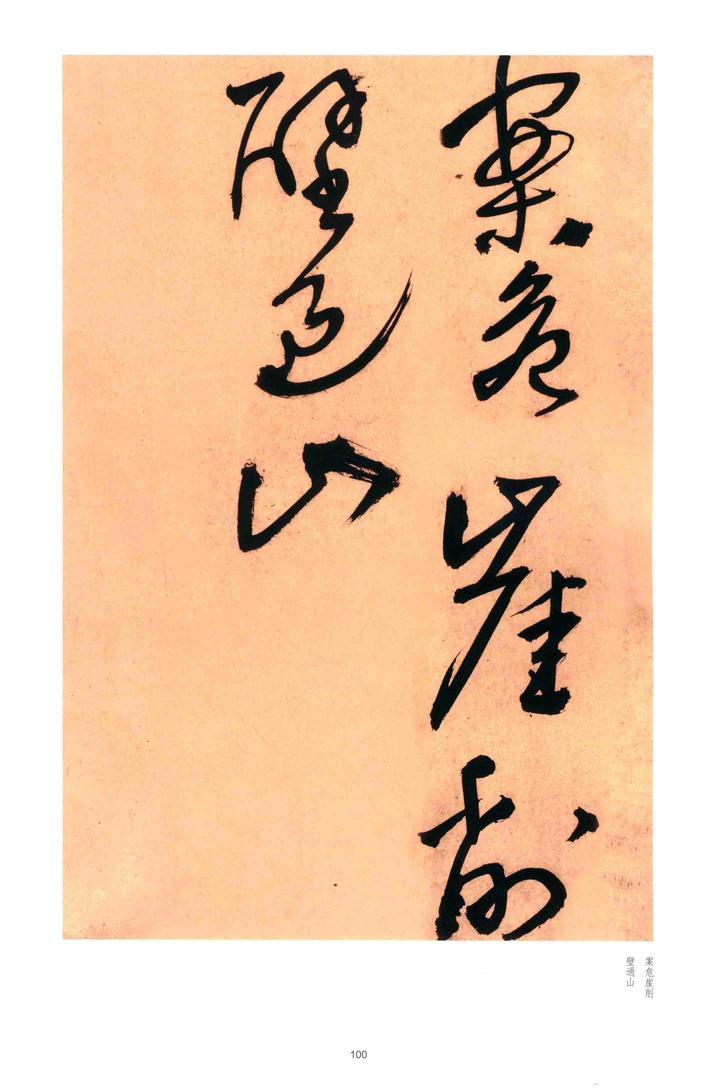 案危崖削
壁過山
案危崖削
壁過山
100